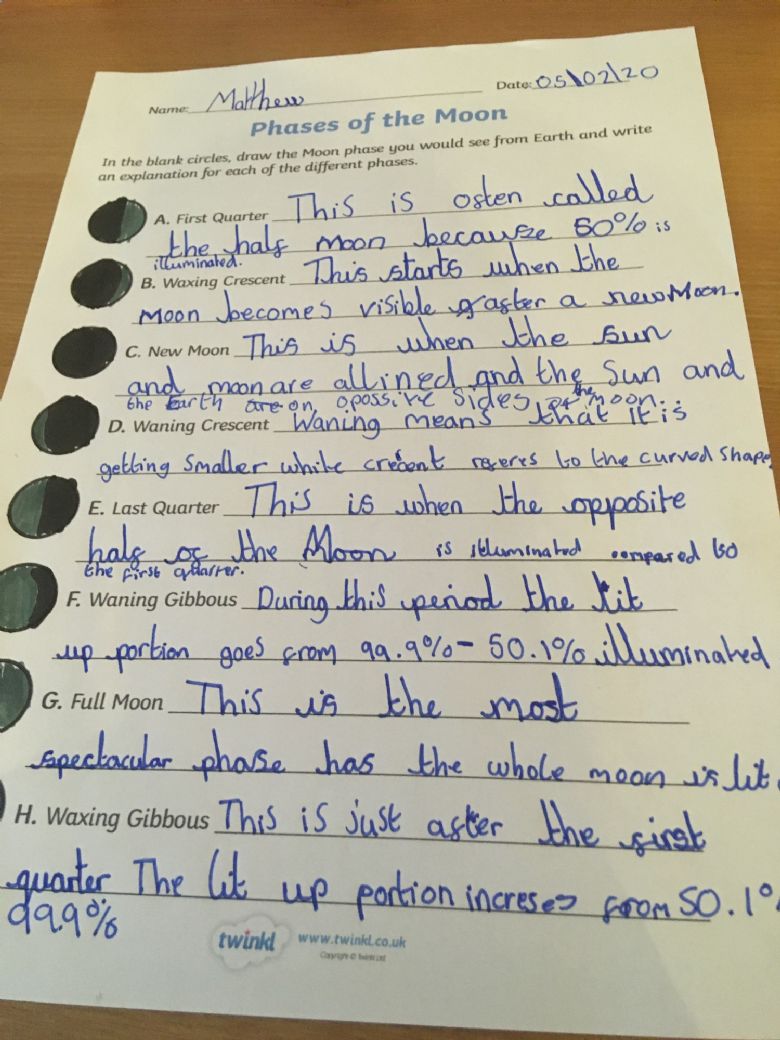 Name: Matthew Date: 05\02\20
Phases of the Moon
In the blank circles, draw the Moon phase you would see from Earth and write
an explanation for each of the different phases.
A. First Quarter This is often called
the half moon because 50% is
illuminated.
B. Waxing Crescent This starts when the
Moon becomes visible after a new Moon.
C. New Moon This is when the sun
and moon are allined and the Sun and
the Earth are on opossive sides of the moon.
D. Waning Crescent Waning means that it is
getting smaller while crecent referes to the curved shape
E. Last Quarter This is when the opposite
half of the Moon is illuminated compared to
the first quarter.
F. Waning Gibbous During this period the lit
up portion goes from 99.9% - 50.1% illuminated
G. Full Moon This is the most
spectacular phase has the whole moon is lit.
H. Waxing Gibbous This is just after the first
quarter The lit up portion increses from 50.1%
99.9%
twinkl www.twinkl.co.uk